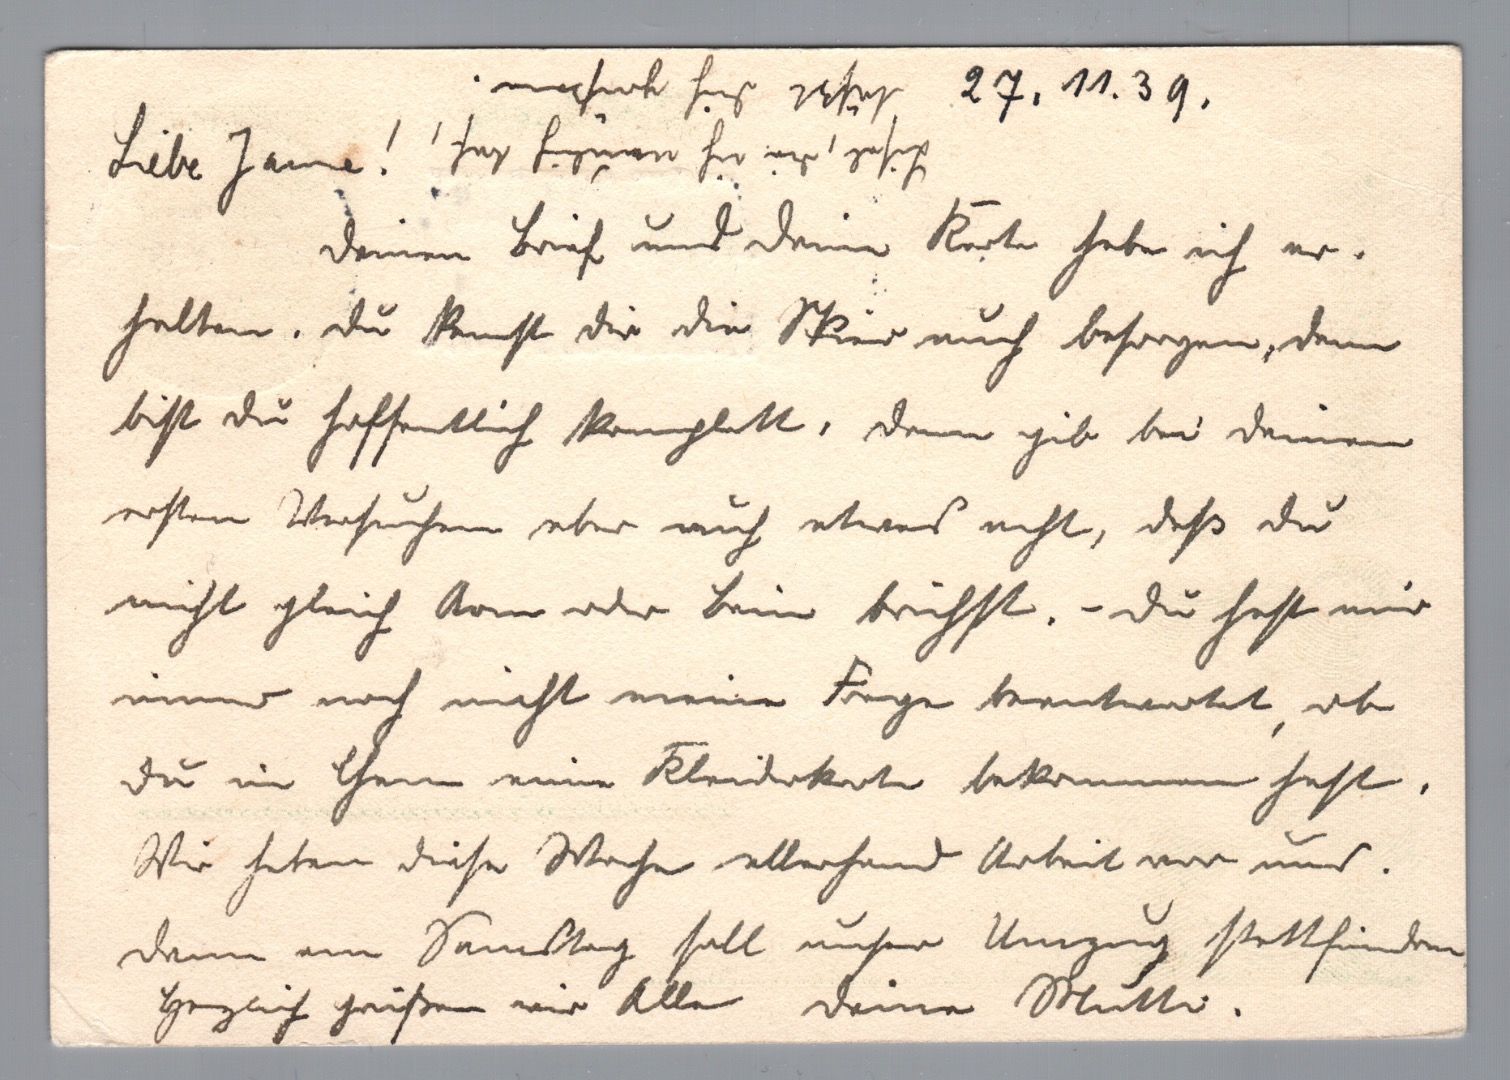 27. 11. 39.
Liebe Janne!
Deinen Brief und Deine Karte habe ich er-
halten. Du kannst dir die Skier auch besorgen, dann
bist du hoffentlich komplett. Dann gib bei Deinen
ersten Versuchen aber auch etwas acht, daß du
nicht gleich Arm oder Bein brichst. - Du hast mir
immer noch nicht meine Frage beantwortet, ob
du in Cham eine Kleiderkarte bekommen hast.
Wir haben diese Woche allerhand Arbeit vor uns.
denn am Samstag soll unser Umzug stattfinden
Herzlich grüßen wir Alle Deine Mutti.